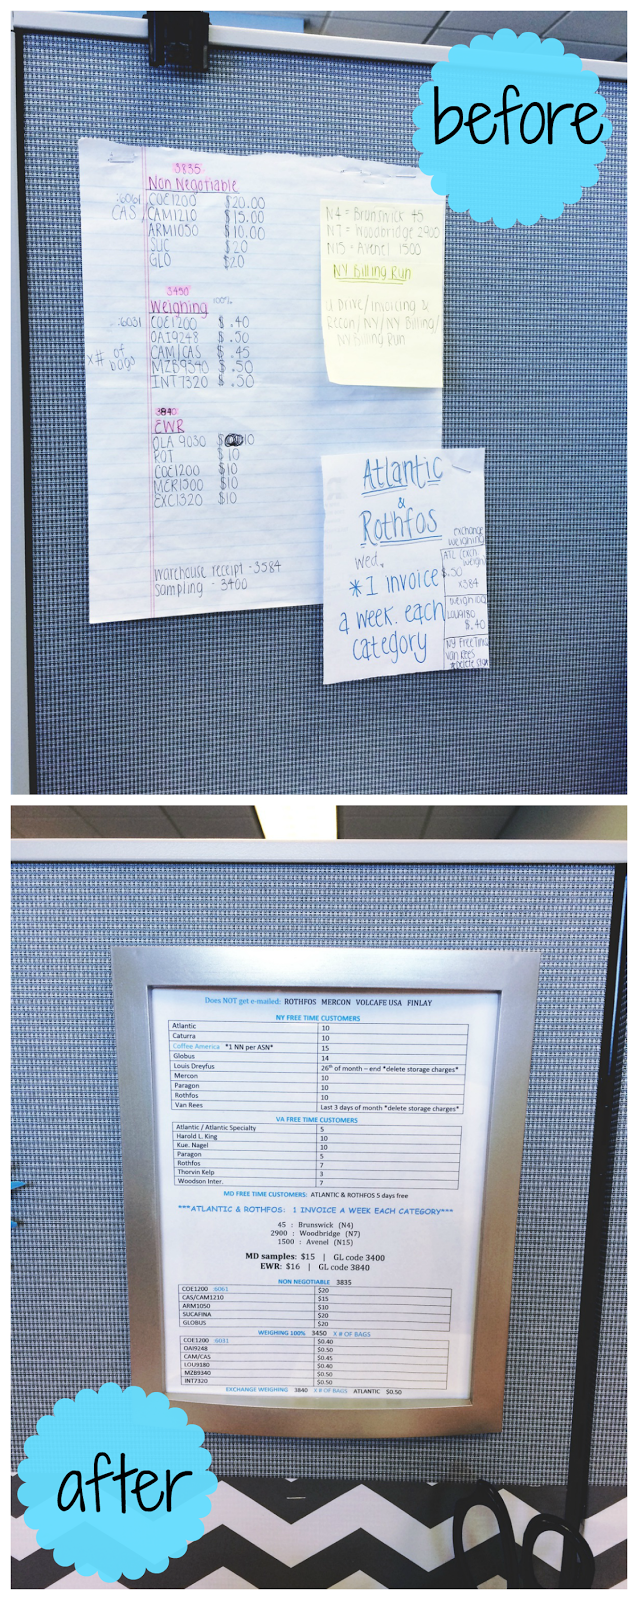 before
3835
Non Negotiable
:6061 COE1200 $20.00
CAS / CAM1210 $15.00
ARM1050 $10.00
SUC $20
GLO $20
3450
Weighing 100%
:6031 COE1200 $.40
OAI9248 $.50
x# of bags CAM/CAS $.45
MZB9340 $.50
INT7320 $.50
3840
EWR
OLA 9030 $10
ROT $10
COE1200 $10
MER1300 $10
EXC1320 $10
warehouse receipt - 3584
sampling - 3400
N4 = Brunswick 45
N7 = Woodbridge 2900
N15 - Avenel 1500
NY Billing Run
u drive/invoicing &
recon/NY/NY Billing/
NY Billing Run
Atlantic
&
Rothfos
Wed.
*1 invoice
a week. each
category
exchange
weighing
ATL (exch.
weigh)
$.50
x584
weigh100
LOU9180
$.40
NY Free Time
Van Rees
after
Does NOT get e-mailed: ROTHFOS MERCON VOLCAFE USA FINLAY
NY FREE TIME CUSTOMERS
Atlantic 10
Caturra 10
Coffee America *1 NN per ASN* 15
Globus 14
Louis Dreyfus 26th of month – end *delete storage charges*
Mercon 10
Paragon 10
Rothfos 10
Van Rees Last 3 days of month *delete storage charges*
VA FREE TIME CUSTOMERS
Atlantic / Atlantic Specialty 5
Harold L. King 10
Kue. Nagel 10
Paragon 5
Rothfos 7
Thorvin Kelp 3
Woodson Inter. 7
MD FREE TIME CUSTOMERS: ATLANTIC & ROTHFOS 5 days free
***ATLANTIC & ROTHFOS: 1 INVOICE A WEEK EACH CATEGORY***
45 : Brunswick (N4)
2900 : Woodbridge (N7)
1500 : Avenel (N15)
MD samples: $15 | GL code 3400
EWR: $16 | GL code 3840
NON NEGOTIABLE 3835
COE1200 6061 $20
CAS/CAM1210 $15
ARM1050 $10
SUCAFINA $20
GLOBUS $20
WEIGHING 100% 3450 X # OF BAGS
COE1200 6031 $0.40
OAI9248 $0.50
CAM/CAS $0.45
LOU9180 $0.40
MZB9340 $0.50
INT7320 $0.50
EXCHANGE WEIGHING 3840 X # OF BAGS ATLANTIC $0.50